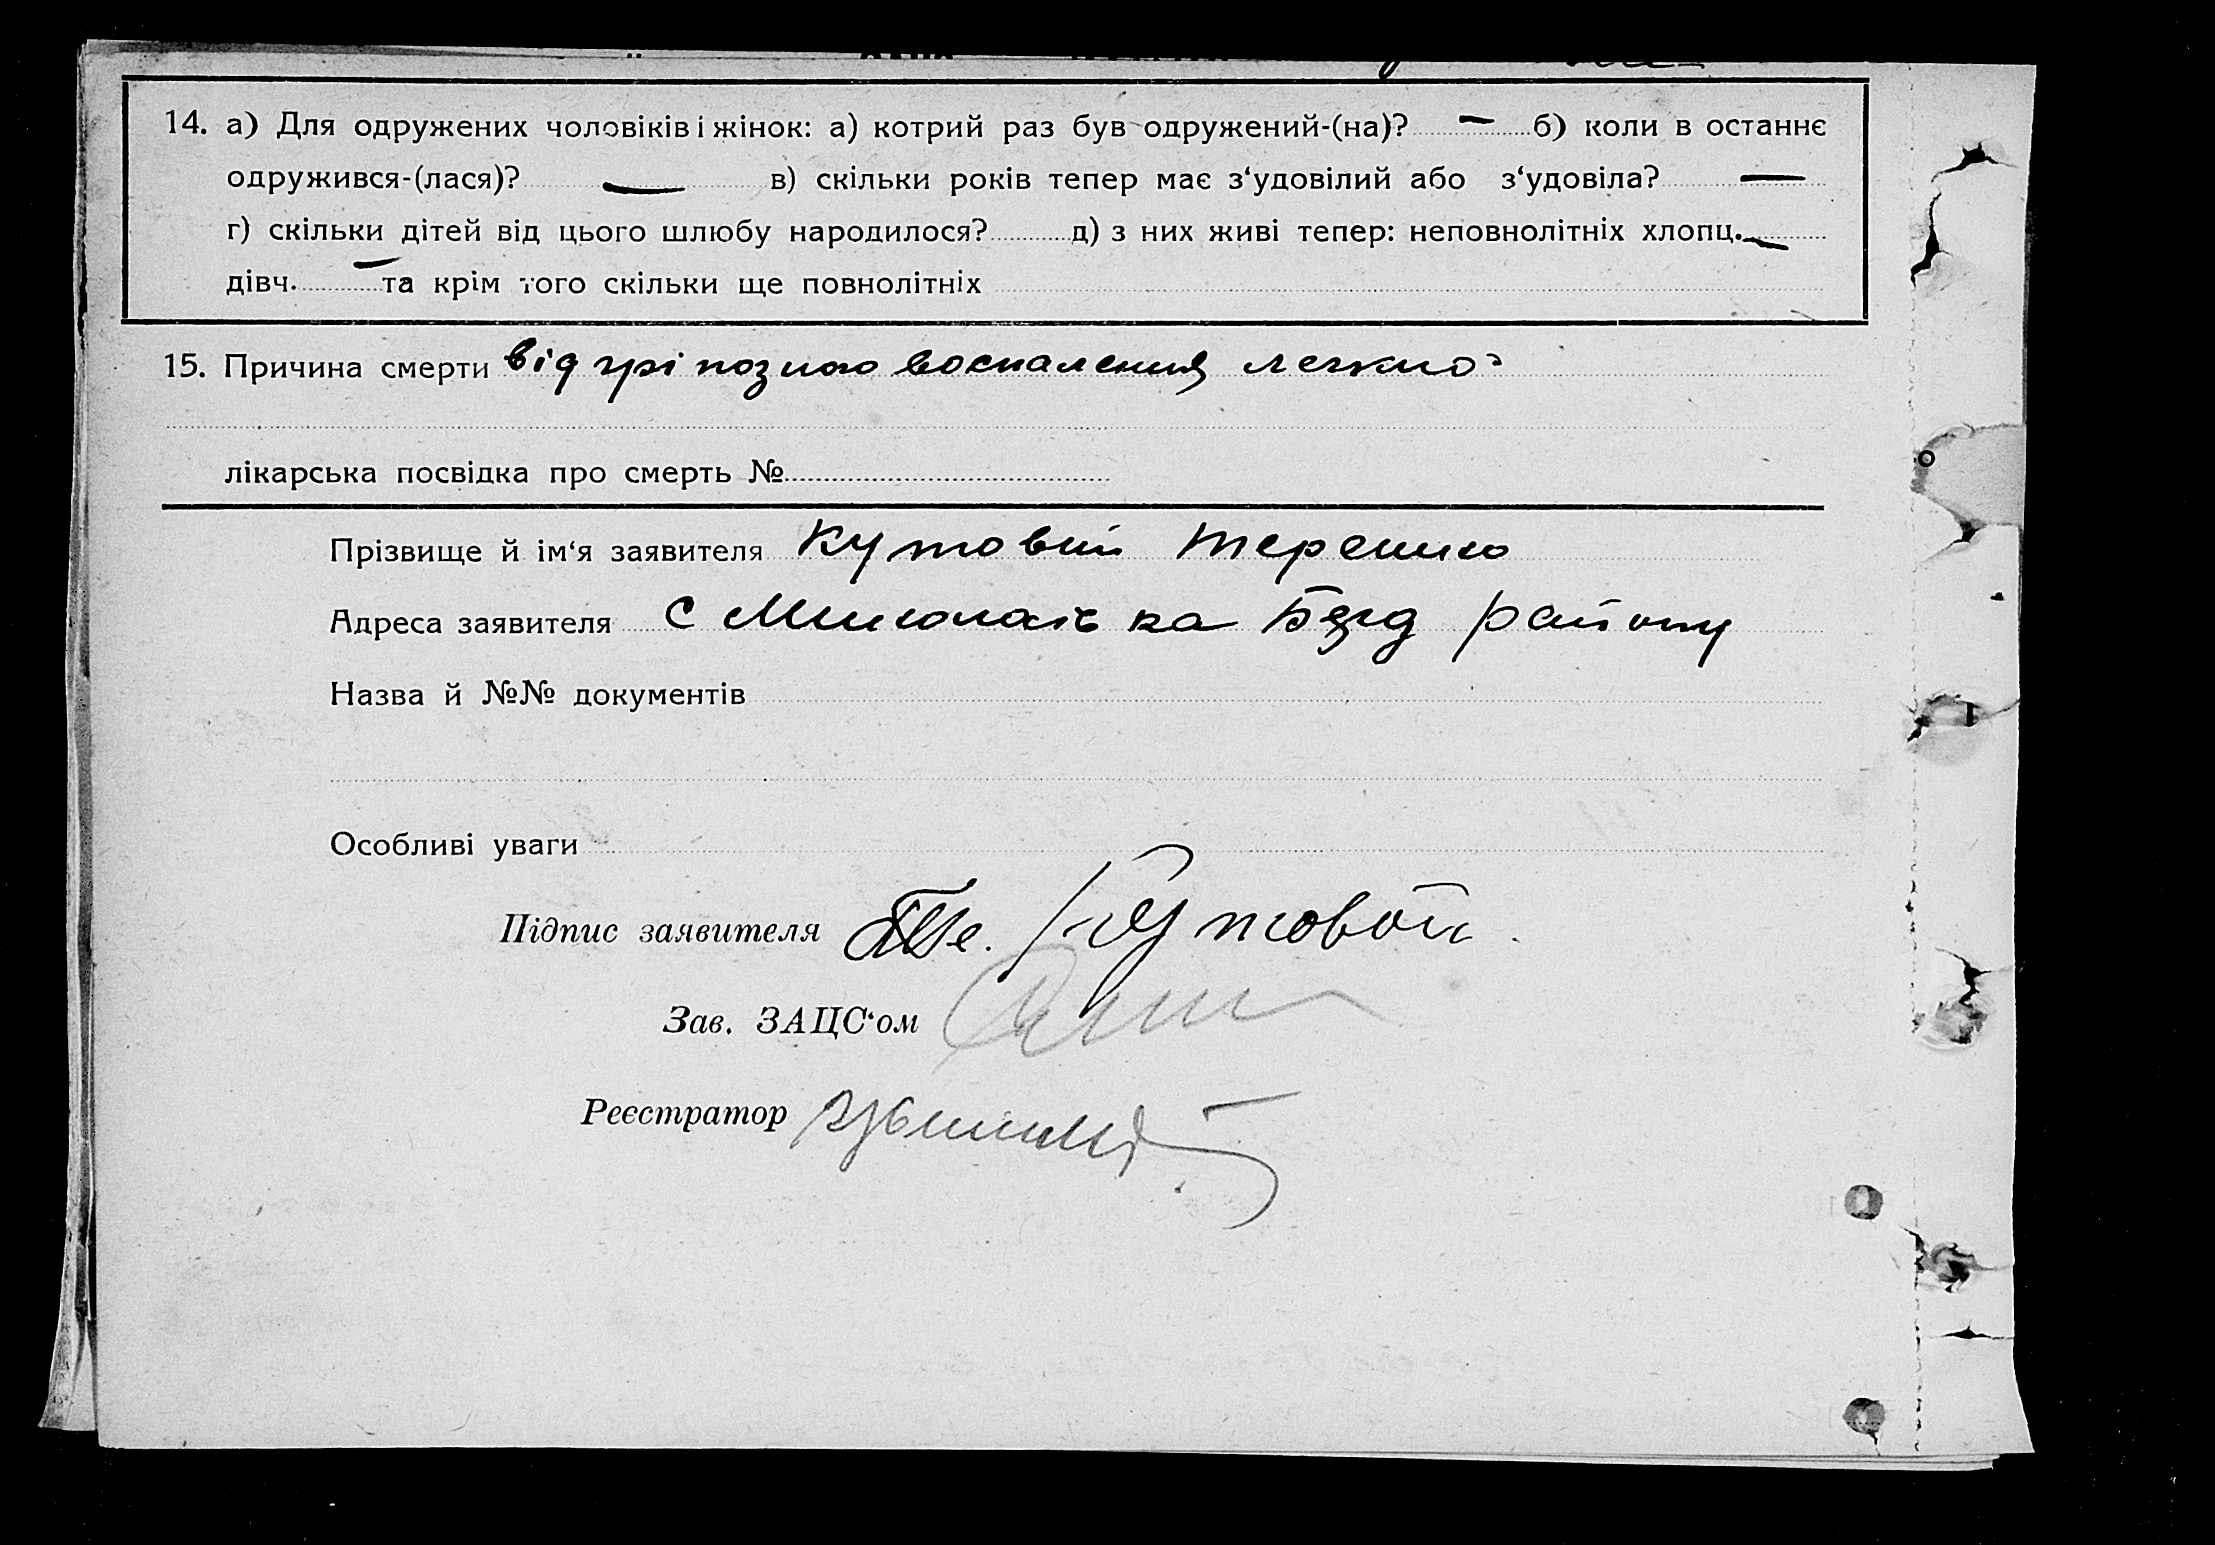 14. а) Для одружених чоловіків і жінок: а) котрий раз був одружений-(на)? — б) коли в останнє
одружився-(лася)? — в) скільки років тепер має з‘удовілий або з‘удовіла? —
г) скільки дітей від цього шлюбу народилося? д) з них живі тепер: неповнолітніх хлопц. —
дівч. — та крім того скільки ще повнолітніх
15. Причина смерти від гріпозного воспаления легкого
лікарська посвідка про смерть №
Прізвище й ім‘я заявителя Кутовий
Адреса заявителя с Миколаївка району
Назва й №№ документів
Особливі уваги
Підпис заявителя Кутовой
Зав. ЗАЦС‘ом
Реєстратор